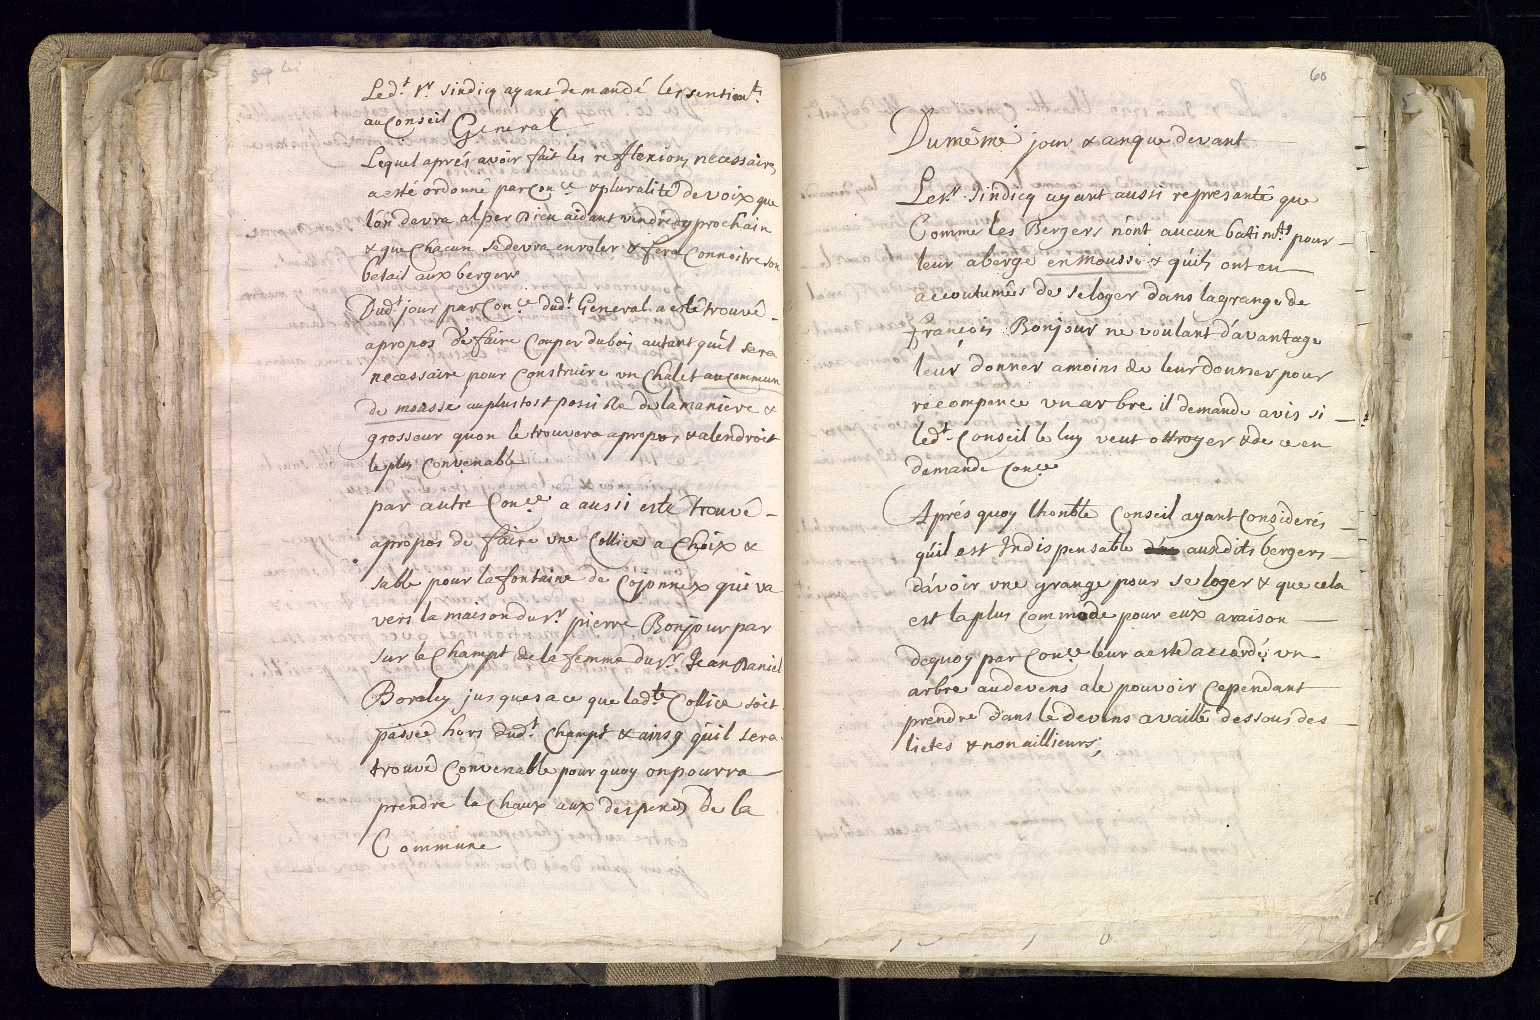 Led.t Sr. Sindicq ayant demandé les sentim.ts
au Conseil General.
Lequel aprés avoir fait les reflexions necessaires
a esté ordonné par Con.ce & pluralité de voix que
lón devra alper Dieu aidant vendredy prochain
& que Chacun se devra enroler & fera Connoitre son
betail aux bergers
Dud.t jour par Con.ce dud.t General a esté trouvé
apropos de faire Couper du bois autant quil sera
necessaire pour Construire un Chalet au Commun
de mousse au plustost possible de la maniere &
grosseur quon le trouvera apropos & a lendroit
le plus Convenable
par autre Con.ce a aussi esté trouvé
apropos de faire une Collice a Choix &
sable pour la fontaine de Cojonnex qui va
vers la maison du Sr. pierre Bonjour par
sur le Champt de la femme du Sr. Jean Daniel
Boraley jusques a ce que lad.te Collice soit
passée hors dud.t Champt & ainsy quil sera
trouvé Convenable pour quoy on pourra
prendre la Chaux aux despends de la
Commune
60
Du méme jour & an que devant
Le Sr. Sindicq ayant aussi representé que
Comme les Bergers nónt aucun batim.ts pour
leur aberge en Mousse & quils ont eu
accoutumés de se loger dans la grange de
françois Bonjour ne voulant dávantage
leur donner a moins de leur donner pour
recompence un arbre il demande avis si
led.t Conseil le luy veut ottroyer & de ce en
demande Con.ce
Aprés quoy lhonble Conseil ayant considerés
quil est Indispensable auxdits bergers
dávoir une grange pour se loger & que cela
est la plus Commode pour eux a raison
dequoy par Con.ce leur a esté accordé un
arbre au devens a le pouvoir Cependant
prendre dans le devens a vaillé dessous des
lietes & non aillieurs;